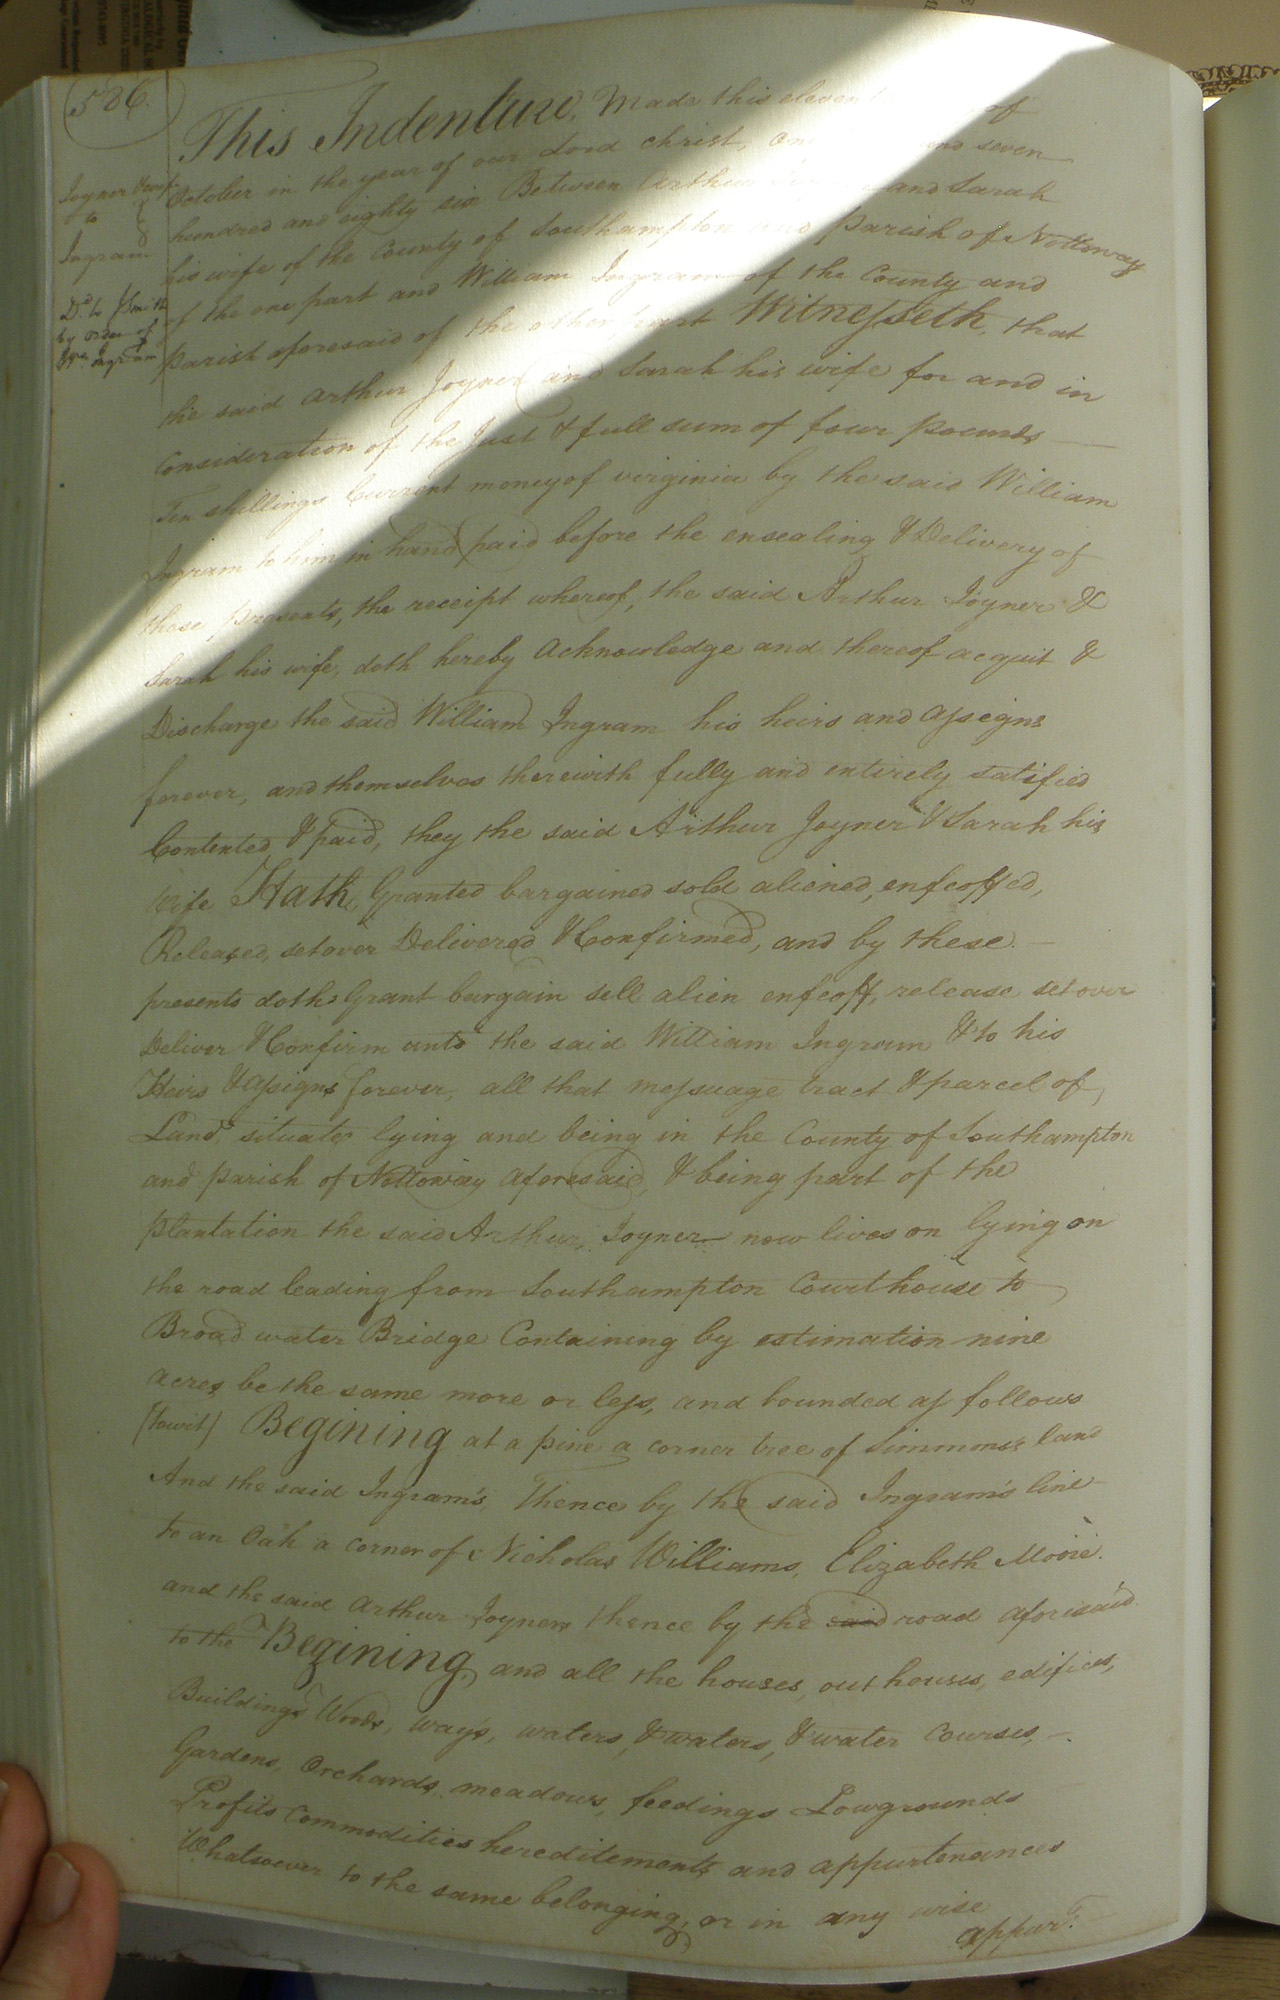 586.
Joyner &
to
Ingram
Dd. to
by order of
Ingram
This Indenture, Made this eleven of
October in the year of our Lord christ, and seven
hundred and eighty six Between Arthur and Sarah
his wife of the County of Southampton and Parish of Nottoway
of the one part and William Ingram of the County and
Parish aforesaid of the other part Witnesseth, that
the said Arthur Joyner and Sarah his wife for and in
Consideration of the Just & full sum of four Pounds
Ten shillings Current money of virginia by the said William
Ingram to him in hand paid before the ensealing & Delivery of
these presents, the receipt whereof, the said Arthur Joyner &
Sarah his wife, doth hereby Acknowledge and thereof acquit &
Discharge the said William Ingram his heirs and assigns
forever, and themselves therewith fully and entirely satisfied
Contented & paid, they the said Arthur Joyner & Sarah his
wife Hath, Granted bargained sold aliened, enfeoffed,
Released, setover Delivered & Confirmed, and by these
presents doth Grant bargain sell alien enfeoff, release setover
Deliver & Confirm unto the said William Ingram & to his
Heirs & assigns forever, all that messuage tract & parcel of
Land situate lying and being in the County of Southampton
and parish of Nottoway aforesaid, & being part of the
plantation the said Arthur Joyner now lives on lying on
the road leading from Southampton Courthouse to
Broad water Bridge Containing by estimation nine
acres be the same more or less, and bounded as follows
(towit) Begining at a pine a corner tree of Simmons's land
And the said Ingram's, Thence by the said Ingram's line
to an Oak a corner of Nicholas Williams, Elizabeth Moore
and the said Arthur Joyners thence by the said road aforesaid
to the Begining, and all the houses, out houses, edifices,
Buildings Woods, ways, waters, & waters, & water Courses,
Gardens, Orchards, meadows, feedings Lowgrounds
Profits Commodities hereditements and appurtenances
Whatsoever to the same belonging, or in any wise
appurt: